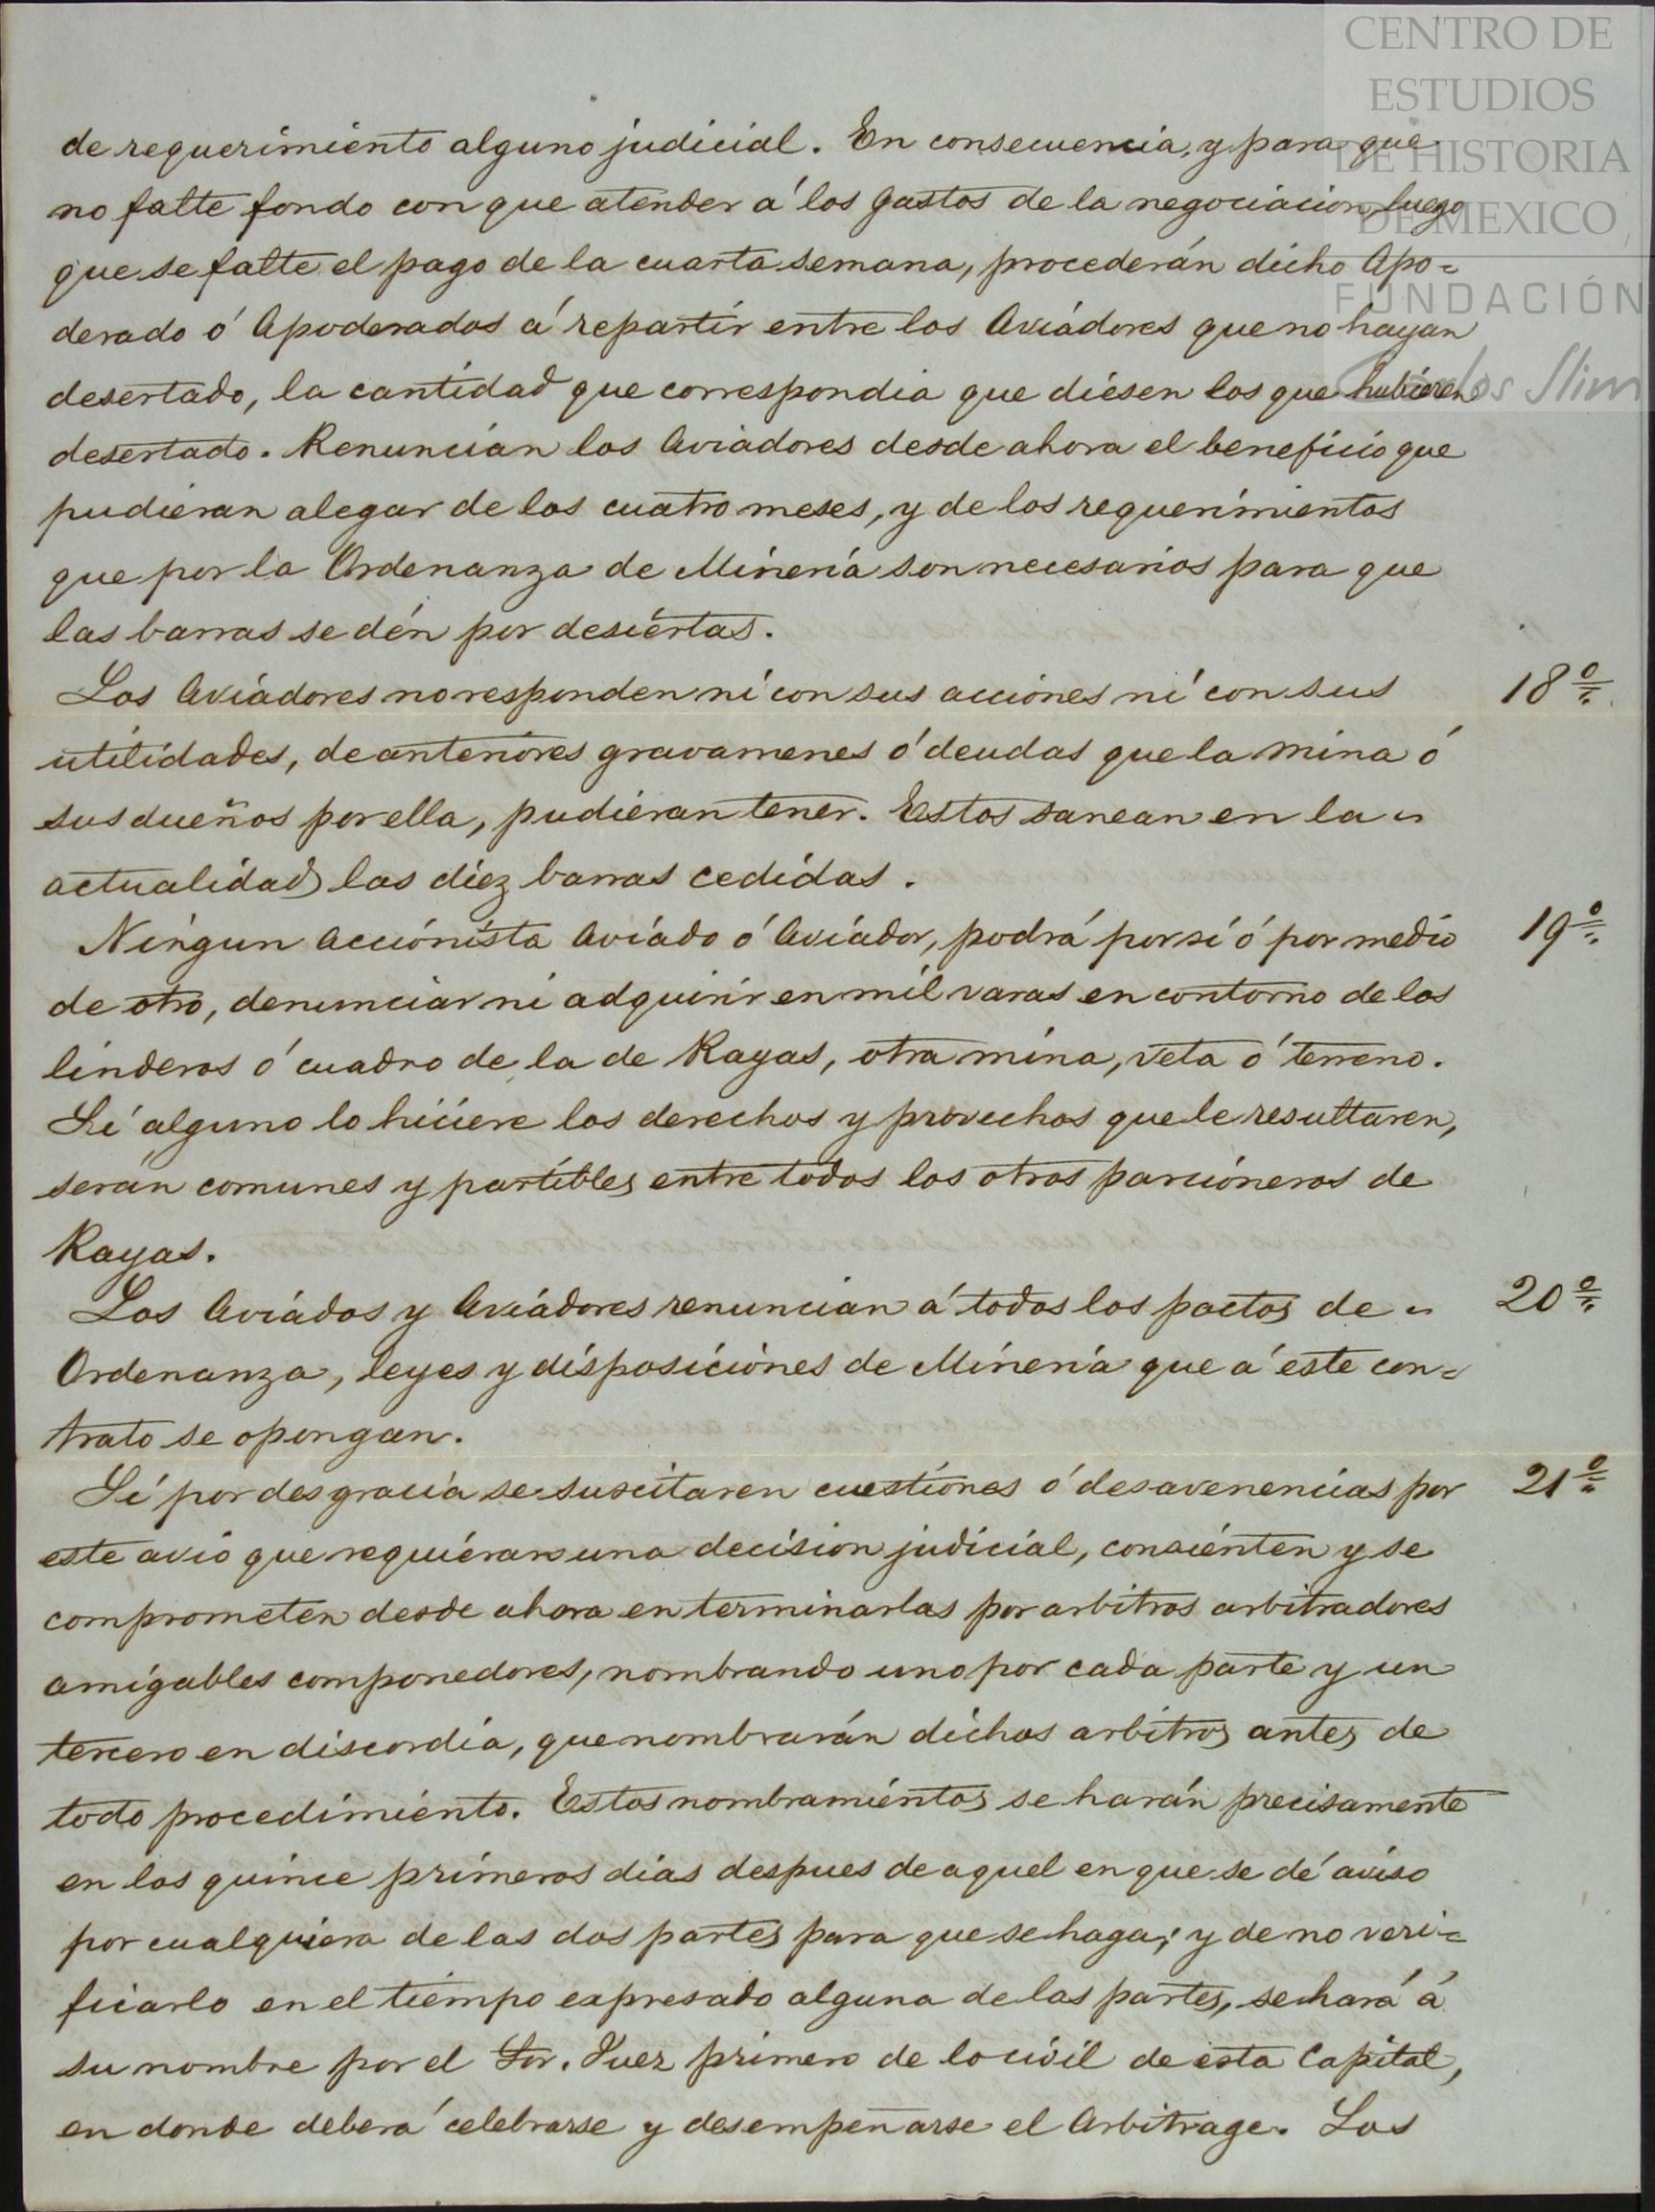 CENTRO DE
ESTUDIOS
DE HISTORIA
DE MEXICO
FUNDACIÓN
Carlos Slim
de requerimiento alguno judicial. En consecuencia, y para que
no falte fondo con que atender á los gastos de la negociacion, luego
que se falte el pago de la cuarta semana, procederán dicho Apo=
derado ó Apoderados á repartir entre los Aviadores que no hayan
desertado, la cantidad que correspondia que diesen los que hubieren
desertado. Renuncian los Aviadores desde ahora el beneficio que
pudieran alegar de los cuatro meses, y de los requerimientos
que por la Ordenanza de Mineria son necesarios para que
las barras se dén por desiertas.
Los Aviadores no responden ni con sus acciones ni con sus
18º
utilidades, de anteriores gravamenes ó deudas que la mina ó
sus dueños por ella, pudieran tener. Estos sanean en la
actualidad las diez barras cedidas.
Ningun accionista Aviado ó Aviador, podrá por sí ó por medio
19º
de otro, denunciar ni adquirir en mil varas en contorno de los
linderos ó cuadro de la de Rayas, otra mina, veta ó terreno.
Si alguno lo hiciere los derechos y provechos que le resultaren,
serán comunes y partibles entre todos los otros parcioneros de
Rayas.
Los Aviados y Aviadores renuncian á todos los pactos de
20º
Ordenanza, leyes y disposiciones de Mineria que á este con=
trato se opongan.
Si por desgracia se suscitaren cuestiones ó desavenencias por
21º
este avio que requieran una decision judicial, consienten y se
comprometen desde ahora en terminarlas por arbitros arbitradores
amigables componedores, nombrando uno por cada parte y un
tercero en discordia, que nombrarán dichos arbitros antes de
todo procedimiento. Estos nombramientos se harán precisamente
en los quince primeros dias despues de aquel en que se dé aviso
por cualquiera de las dos partes para que se haga; y de no veri=
ficarlo en el tiempo espresado alguna de las partes, se hará á
su nombre por el Sor. Juez primero de lo civil de esta Capital,
en donde deberá celebrarse y desempeñarse el Arbitrage. Los